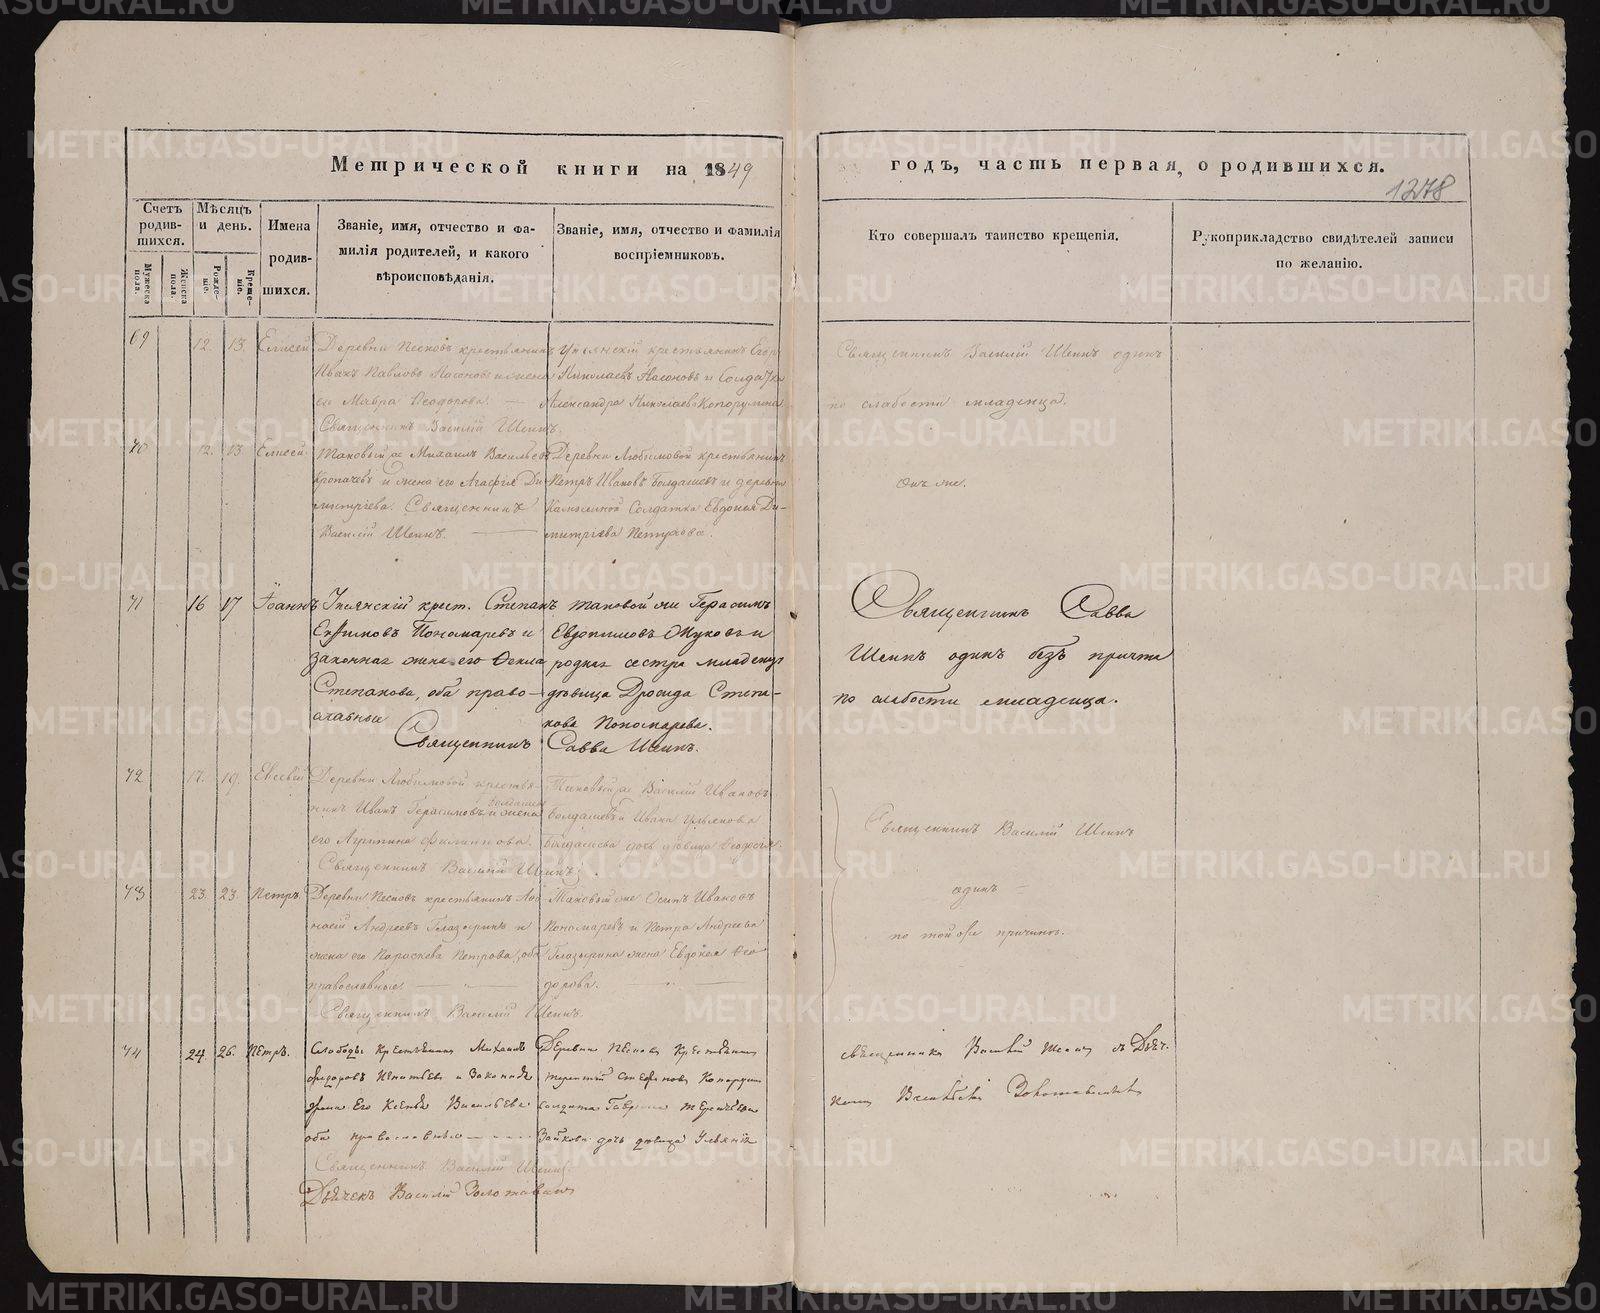 Метрической книги на 1849
годъ, часть первая, о родившихся.
1278
Счетъ родив-
шихся.
Мѣсяцъ
и день.
Имена
родив-
шихся.
Званіе, имя, отчество и фа-
милія родителей, и какого
вѣроисповѣданія.
Званіе, имя, отчество и фамилія
воспріемниковъ.
Кто совершалъ таинство крещенія.
Рукоприкладство свидѣтелей записи
по желанію.
Мужеска
пола.
Женска
пола.
Рожде-
ніе.
Креще-
ніе.
69 12. 13. Елисей
Деревни Песковъ крестьянинъ
Иванъ Павловъ Насоновъ и жена
его Мавра Ѳеодорова.
Священникъ Василій Шеинъ.
крестьянинъ Егоръ
Николаевъ Насоновъ и Солдатка
Александра Николаева
Священникъ Василій Шеинъ одинъ
по слабости младенца.
70 12. 13 Елисей
Таковый же Михаилъ Васильевъ
Кропачевъ и жена его Агафія Ди-
митріева. Священникъ
Василій Шеинъ.
Деревни Любимовой крестьянинъ
Петръ Ивановъ Болдашевъ и деревни
Солдатка Евдокія Ди-
митріева Петухова.
Онъ же.
71 16 17 Іоаннъ
крест. Степанъ
Ефимовъ Пономаревъ и
законная жена его Ѳекла
Степанова, оба право-
славные
Таковой же Герасимъ
Евдокимовъ Жуковъ и
родная сестра младенца
дѣвица Дросида Степа-
нова Пономарева.
Священникъ Савва Шеинъ.
Священникъ Савва
Шеинъ одинъ безъ причта
по слабости младенца.
72 17. 19. Евсевій
Деревни Любимовой крестья-
нинъ Иванъ Герасимовъ Болдашевъ и жена
его Агрипина Филиппова.
Священникъ Василій Шеинъ.
Таковый же Василій Ивановъ
Болдашевъ и Ивана Ульянова
Болдашева дочь дѣвица
Священникъ Василій Шеинъ
одинъ
по той же причинѣ.
73 23. 23 Петръ.
Деревни Песковъ крестьянинъ
Андреевъ Глазыринъ и
жена его Параскева Петрова, оба
православные.
Священникъ Василій Шеинъ.
Таковый же Осипъ Ивановъ
Пономаревъ и Петра Андреева
Глазырина жена Евдокія Ѳео-
дорова.
74 24. 26. Петръ.
Слободы Крестьянинъ Михаилъ
Игнатьевъ и Законная
жена Его Ксенья Васильева
оба православные
Священникъ Василій Шеинъ
Дьячекъ Василій Золотавинъ
Деревни Песковъ Крестьянинъ
Терентій Стефановъ
солдата Гаврила Терентьева
Зайкова дочь дѣвица
священникъ Василій Шеинъ съ Дьяч-
комъ